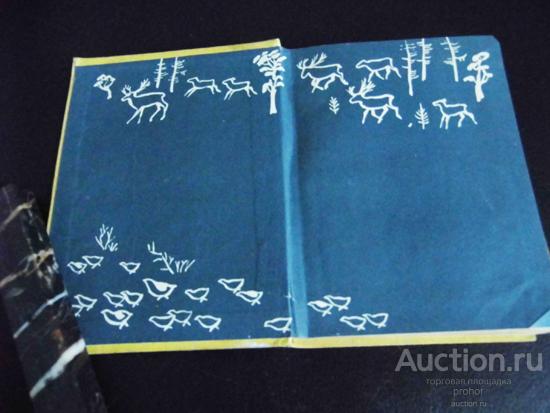 Auction.ru
торговая площадка
prohor
auction.ru